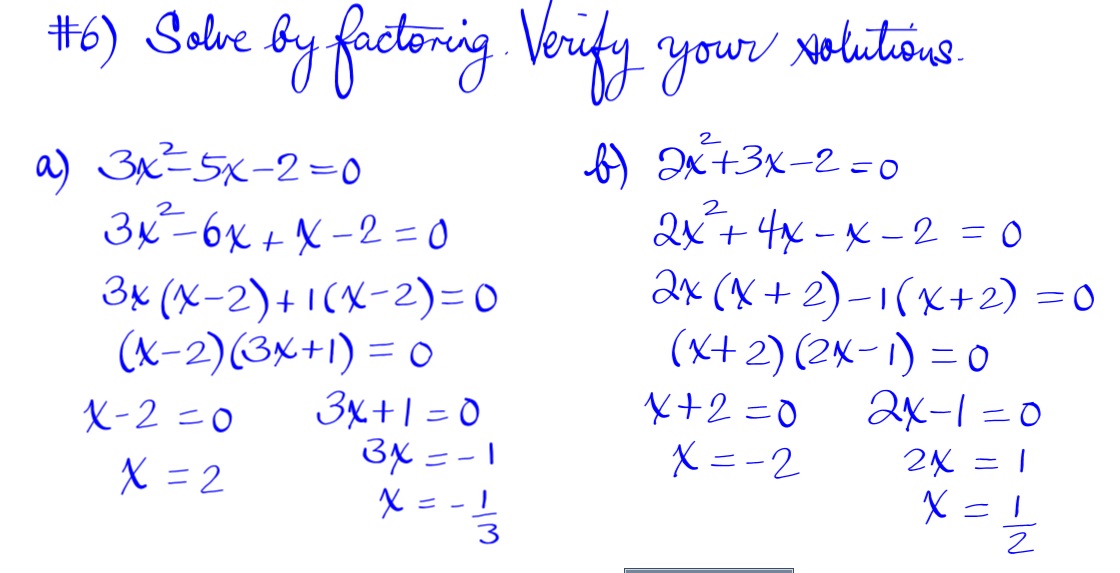 #6) Solve by factoring. Verify your solutions.
a) 3x²-5x-2=0
3x²-6x+x-2=0
3x(x-2)+1(x-2)=0
(x-2)(3x+1)=0
x-2=0 3x+1=0
3x=-1
x=2
x=-1/3
b) 2x²+3x-2=0
2x²+4x-x-2=0
2x(x+2)-1(x+2)=0
(x+2)(2x-1)=0
x+2=0 2x-1=0
x=-2 2x=1
x=1/2